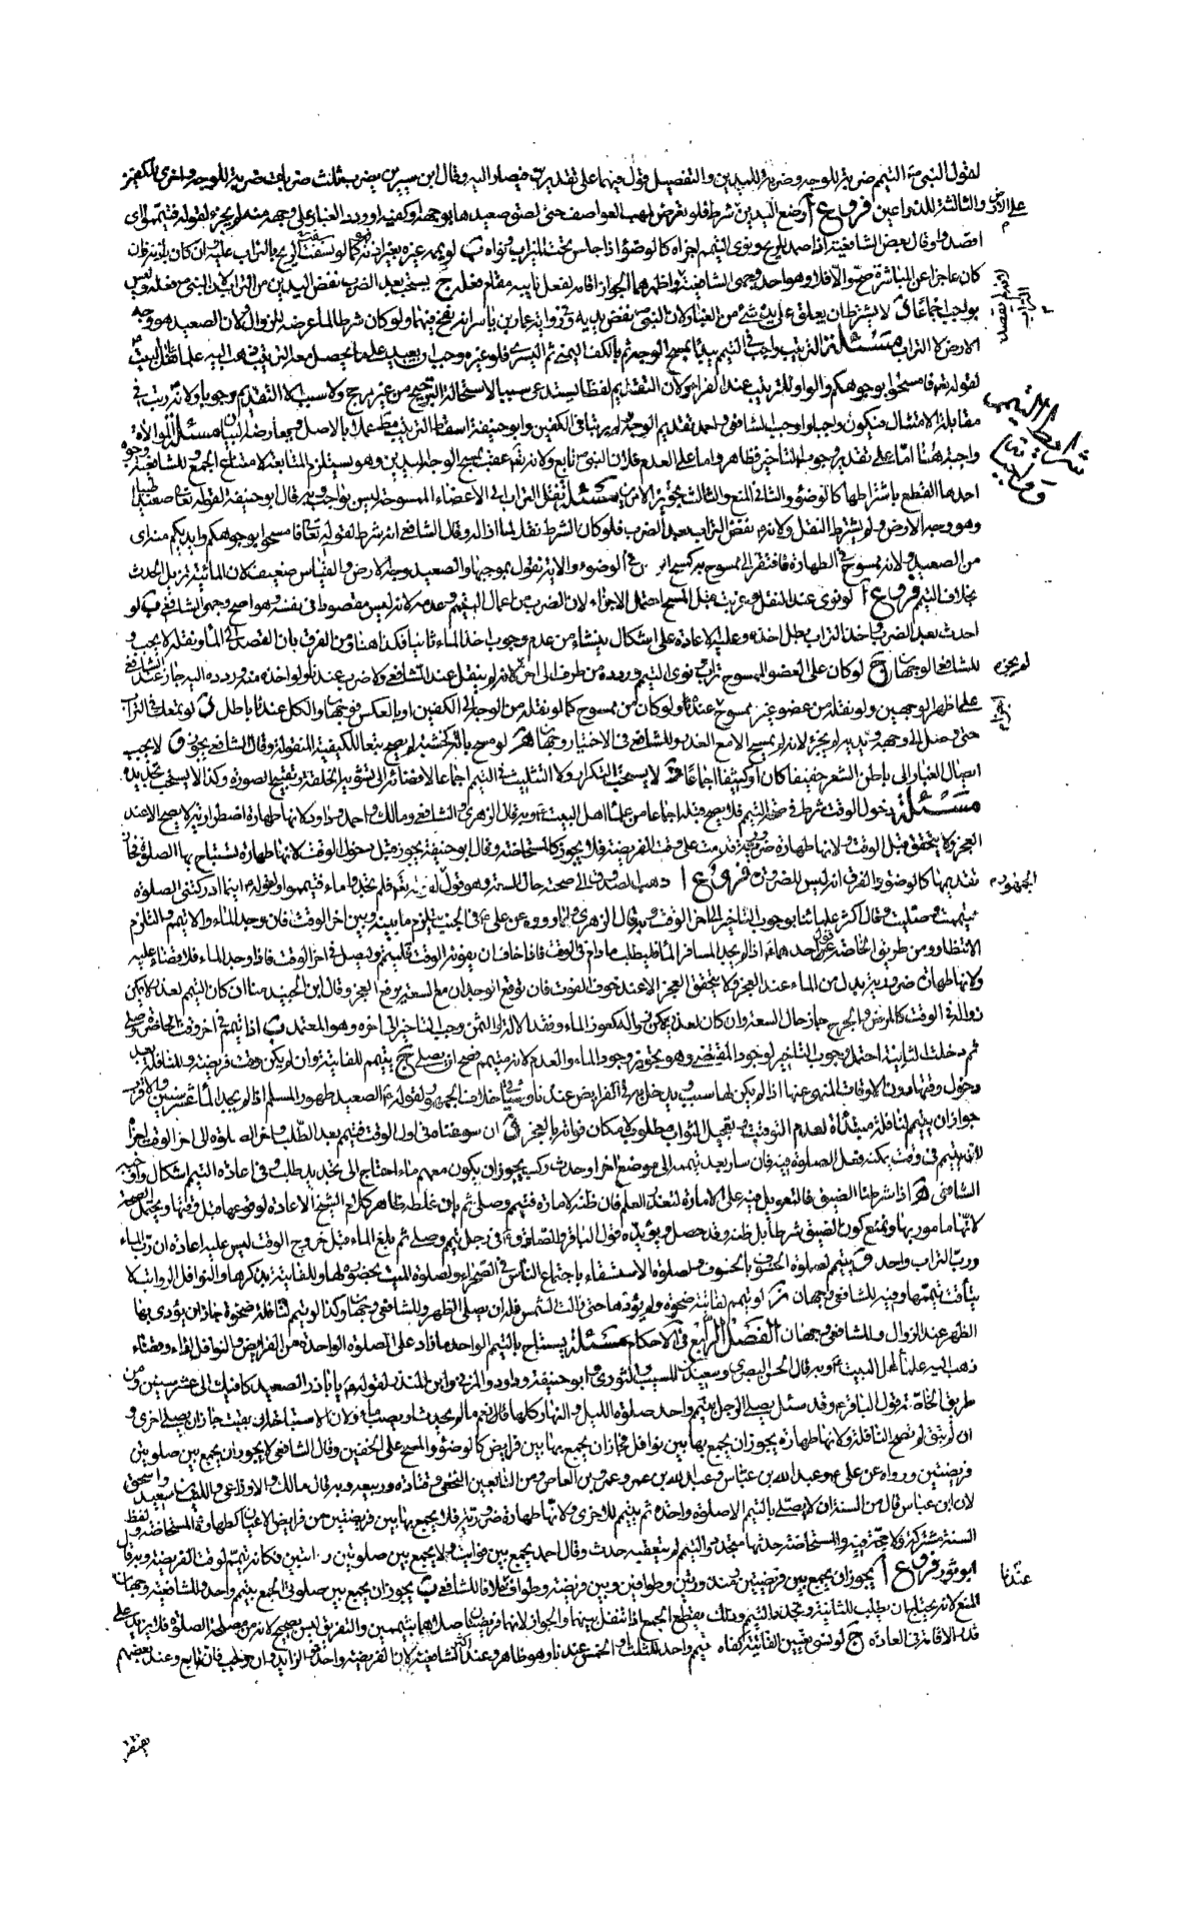 لقول النبي ص التيمم ضربة للوجه وضربة لليدين والتفصيل قول فيهما على تقديرين فيصار اليه وقال ابن سيرين يضرب ثلث ضربات ضربة للوجه واخرى للكفين
والثالثة للذراعين فروع ا وضع اليدين شرط فلو تعرض لمهب العواصف حتى لصق صعيدها بوجهه وكفيه او ردد الغبار على وجهه منه لم يجزء لقوله فتيمموا اى
اقصدوا وقال بعض الشافعية اذا صمد للريح ونوى التيمم اجزاه كالوضوء اذا جلس تحت الميزاب ونواه ب لو يممه غيره بغير اذنه فهو كما لو سفت الريح بالتراب عليه ان كان باذنه فان
كان عاجزا عن المباشرة صح والا فلا وهو احد وجهي الشافعية واظهرهما الجواز اقامة لفعل نايبه مقام فعله ج يستحب بعد الضرب نفض اليدين من التراب لان النبي ص فعله وليس
بواجب اجماعا د لا يشترط ان يعلق على يديه شئ من الغبار لان النبي ص نفض يديه وفي رواية عمار بن ياسر انه نفخ فيهما ولو كان شرطا لما عرضه للزوال ولان الصعيد هو وجه
الارض لا التراب مسئلة الترتيب واجب في التيمم يبدأ بمسح الوجه ثم بالكف اليمنى ثم اليسرى فلو غيره وجب ان يعيد على ما يحصل معه الترتيب ذهب اليه علمائنا اهل البيت
لقوله تعالى فامسحوا بوجوهكم والواو للترتيب عند الفراء ولان التقديم لفظا يستدعى سببا لاستحالة الترجيح من غير مرجح ولا سبب الا التقديم وجوبا ولانه رتب في
مقابلة الامتثال فيكون واجبا واوجب الشافعي واحمد تقديم الوجه ولم يرتبا في الكفين وابو حنيفة اسقط الترتيب مطلقا عملا بالاصل ومعارضه البيان مسئلة الموالاة
واجبة هنا اما على تقدير وجوب التاخير فظاهر واما على العدم فلان النبي ص تابع ولانه تعالى عقب بمسح الوجه اليدين وهو يستلزم المتابعة لامتناع الجمع وللشافعية وجوه
احدها القطع باشتراطها كالوضوء والثاني المنع والثالث تجويز الامرين مسئلة نقل التراب الى الاعضاء الممسوحة ليس بواجب وبه قال ابو حنيفة لقوله تعالى صعيدا طيبا
وهو وجه الارض ولم يشترط النقل ولانه ص نفض التراب بعد الضرب فلو كان الشرط نقله لما ازاله وقال الشافعي انه شرط لقوله تعالى فامسحوا بوجوهكم وايديكم منه اى
من الصعيد ولانه ممسوح في الطهارة فافتقر الى ممسوح به كمسح الراس في الوضوء والاية نقول بموجبها والصعيد وجه الارض والقياس ضعيف لان المائية تزيل الحدث
بخلاف التيمم فروع ا لو نوى عند النقل وعزبت قبل المسح احتمل الاجزاء لان الضرب من اعمال التيمم وعدمه لانه ليس مقصودا في نفسه وهو اصح وجهي الشافعي ب لو
احدث بعد الضرب واخذ التراب بطل اخذه وعليه الاعادة على اشكال ينشاء من عدم وجوب اخذ الماء ثانيا فكذا هنا ومن الفرق بان القصد الى الماء ونقله لا يجب و
للشافعي الوجهان ج لو كان على العضو الممسوح تراب نوى التيمم وردده من طرف الى اخر لم يجزء لانه لم ينقل عند الشافعي ولا ضرب عندنا ولو اخذه منه ورده اليه جاز عند الشافعي
على اظهر الوجهين ولو نقله من عضو غير ممسوح عندنا ولو كان من ممسوح كما لو نقله من الوجه الى الكفين او بالعكس فوجهان والكل عندنا باطل د لو تمعك في التراب
حتى وصل الى وجهه ويديه لم يجزء لانه لم يمسح الا مع العذر وللشافعي في الاختيار وجهان ه لو مسح بالة كخشبة لم يصح تبعا للكيفية المنقولة وقال الشافعي يجوز و لا يجب
ايصال الغبار الى باطن الشعر خفيفا كان او كثيفا اجماعا ز لا يستحب التكرار ولا التثليث في التيمم اجماعا لافضائه الى تشويه الخلقة وتقبيح الصورة وكذا لا يستحب تجديده
مسئلة دخول الوقت شرط في صحة التيمم فلا يصح قبله اجماعا من علماء اهل البيت ع وبه قال الزهرى والشافعي ومالك واحمد وداود لانها طهارة اضطرارية لا يصح الا عند
العجز ولا يتحقق قبل الوقت ولانها طهارة ضرورية قدمت على وقت الفريضة فلا يجوز كالمستحاضة وقال ابو حنيفة يجوز قبل دخول الوقت لانها طهارة يستباح بها الصلوة فجاز
تقديمها كالوضوء والفرق انه ليس للضرورة فروع ا ذهب الصدوق الى صحته حال السعة وهو قول الجمهور لقوله تعالى فلم تجدوا ماء فتيمموا ولقوله ع اينما ادركتنى الصلوة
تيممت وصليت وقال اكثر علمائنا بوجوب التاخير الى اخر الوقت وبه قال الزهرى لما رووه عن علي ع في الجنب يتلوم ما بينه وبين اخر الوقت فان وجد الماء والا تيمم والتلوم
الانتظار ومن طريق الخاصة قول احدهما ع اذا لم يجد المسافر الماء فليطلب ما دام في الوقت فاذا خاف ان يفوته الوقت فليتيمم وليصل في اخر الوقت فاذا وجد الماء فلا قضاء عليه
ولانها طهارة ضرورية بدل من الماء عند العجز ولا يتحقق العجز الا عند خوف الفوت فان توقع الوجدان مع السعة يرفع العجز وقال ابن الجنيد منا ان كان التيمم لعذر لا يمكن
زواله في الوقت كالمرض والجرح جاز حال السعة وان كان لعذر يمكن زواله كعوز الماء وفقد الالة او الثمن وجب التاخير الى اخره وهو المعتمد ب اذا تيمم في اخر وقت الحاضرة وصلى
ثم دخلت الثانية احتمل وجوب التاخير لوجود المقتضى وهو تجويز وجود الماء والعدم لانه متيمم فصح ان يصلى ج يتيمم للفائتة وان لم يكن وقت فريضة وللنافلة بعد
دخول وقتها دون الاوقات المنهى عنها اذا لم يكن لها سبب ويدخل به في الفرائض عندنا خلافا للجمهور ولقوله ع الصعيد طهور المسلم اذا لم يجد الماء عشر سنين والاقرب
جواز ان يتيمم لنافلة مبتدأة لعدم التوقيت وتعجيل الثواب مطلوب لامكان فواته بالعجز د ان سوغنا في اول الوقت فتيمم بعد الطلب واخر الصلوة الى اخر الوقت اجزأ
لانه تيمم في وقت يمكنه فعل الصلوة فيه فان سار بعد تيممه الى موضع اخر او حدث ركب يجوز ان يكون معهم ماء احتاج الى تجديد طلب وفي اعادة التيمم اشكال واوجبه
الشافعي ه اذا شرطنا الضيق فالتعويل فيه على الامارة لتعذر العلم فان ظنه لامارة فتيمم وصلى ثم بان غلطه ظاهر كلام الشيخ الاعادة لوقوعها قبل وقتها ويحتمل الصحة
لانها مامور بها ونمنع كون الضيق شرطا بل ظنه وقد حصل ويؤيده قول الباقر والصادق ع في رجل تيمم وصلى ثم بلغ الماء قبل خروج الوقت ليس عليه اعادة ان رب الماء
ورب التراب واحد و يتيمم لصلوة الخسوف بالخسوف ولصلوة الاستسقاء باجتماع الناس في الصحراء ولصلوة الميت بحضوره وللفائتة بذكرها والنوافل الرواتب لا
يتأقت تيممها وفيه للشافعي وجهان ز لو تيمم لفائتة ضحوة ولم يؤدها حتى زالت الشمس فله ان يصلى الظهر وللشافعي وجهان وكذا لو تيمم لنافلة ضحوة جاز ان يؤدى بها
الظهر عند الزوال وللشافعي وجهان الفصل الرابع في الاحكام مسئلة يستباح بالتيمم الواحد ما زاد على الصلوة الواحدة من الفرايض والنوافل اداء وقضاء
ذهب اليه علماء اهل البيت ع وبه قال الحسن البصرى وسعيد بن المسيب والثورى وابو حنيفة وداود والمزنى وابن المنذر لقوله ع يا باذر الصعيد كافيك الى عشر سنين ومن
طريق الخاصة قول الباقر ع وقد سئل يصلى الرجل بتيمم واحد صلوة الليل والنهار كلها قال نعم ما لم يحدث او يصيب ماء ولان الاستباحة ان بقيت جاز ان يصلى اخرى و
ان لم تبق لم تصح النافلة ولانها طهارة يجوز ان يجمع بها بين نوافل فجاز ان يجمع بها بين فرايض كالوضوء والمسح على الخفين وقال الشافعي لا يجوز ان يجمع بين صلوتين
فريضتين ورواه عن علي ع وعبد الله بن عباس وعبد الله بن عمر وعمرو بن العاص ومن التابعين النخعى وقتادة وربيعة وبه قال مالك والاوزاعى والليث واحمد واسحق
لان ابن عباس قال من السنة ان لا يصلى بالتيمم الا صلوة واحدة ثم يتيمم للاخرى ولانها طهارة ضرورية فلا يجمع بها بين فريضتين من فرايض الاعيان كطهارة المستحاضة ولفظ
السنة مشتركة ولا حجة فيه والمستحاضة حدثها متجدد والتيمم لم يتعقبه حدث وقال احمد يجمع بين فوائت ولا يجمع بين صلوتين راتبتين فكانه تيمم لوقت الفريضة وبه قال
ابو ثور فروع ا يجوز ان يجمع بين فريضتين منذورتين وطوافين وبين فريضة وطواف خلافا للشافعي ب يجوز ان يجمع بين صلوتى الجمع بتيمم واحد وللشافعية وجهان
المنع لانه يحتاج ان يطلب للثانية ويجدد التيمم وذلك يقطع الجمع اذا تنفل بينهما والجواز لانهما فريضتان اصلهما بتيممين والتفريق ليس بصحيح لانه من مصلحة الصلوة فلا يزيد على
قدر الاقامة في العادة ج لو نسى تعيين الفائتة كفاه تيمم واحد للثلث او الخمس عندنا وهو ظاهر وعند اكثر الشافعية لان الفريضة واحدة والزايد وان وجب فان تابع وعند بعضهم
على الارض
شرايط التيمم
وواجباته
لم يجزء
الجمهور
عندنا
يفتقر